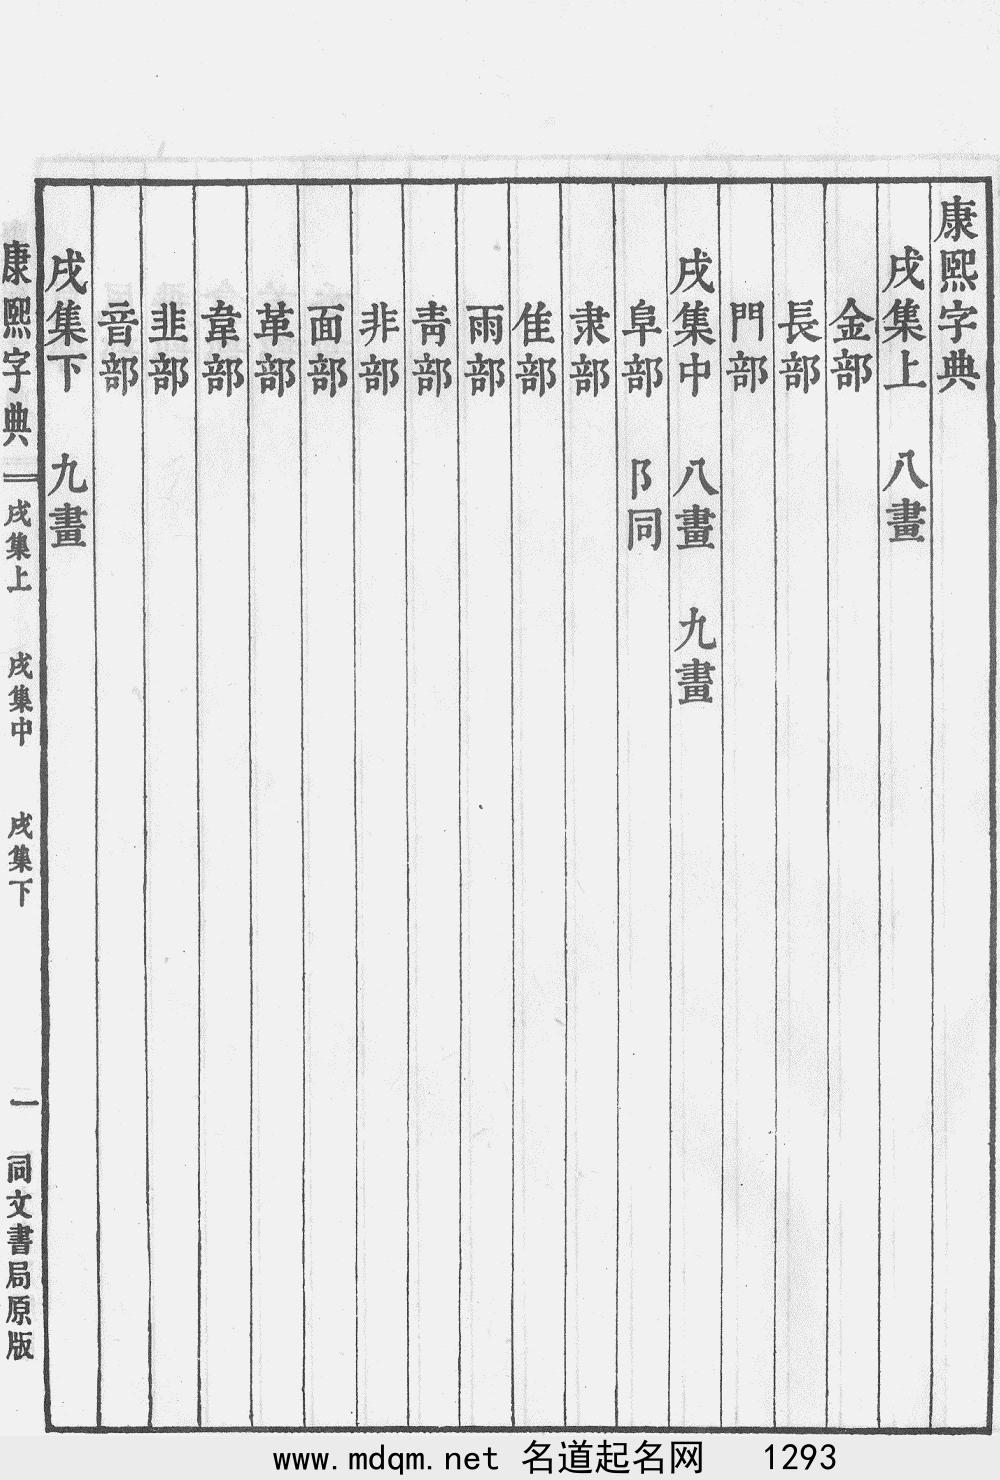 康熙字典
戌集上　八畫
金部
長部
門部
戌集中　八畫　九畫
阜部　阝同
隶部
隹部
雨部
靑部
非部
面部
革部
韋部
韭部
音部
戌集下　九畫
康熙字典　戌集上　戌集中　戌集下　一　同文書局原版
www.mdqm.net 名道起名网 1293